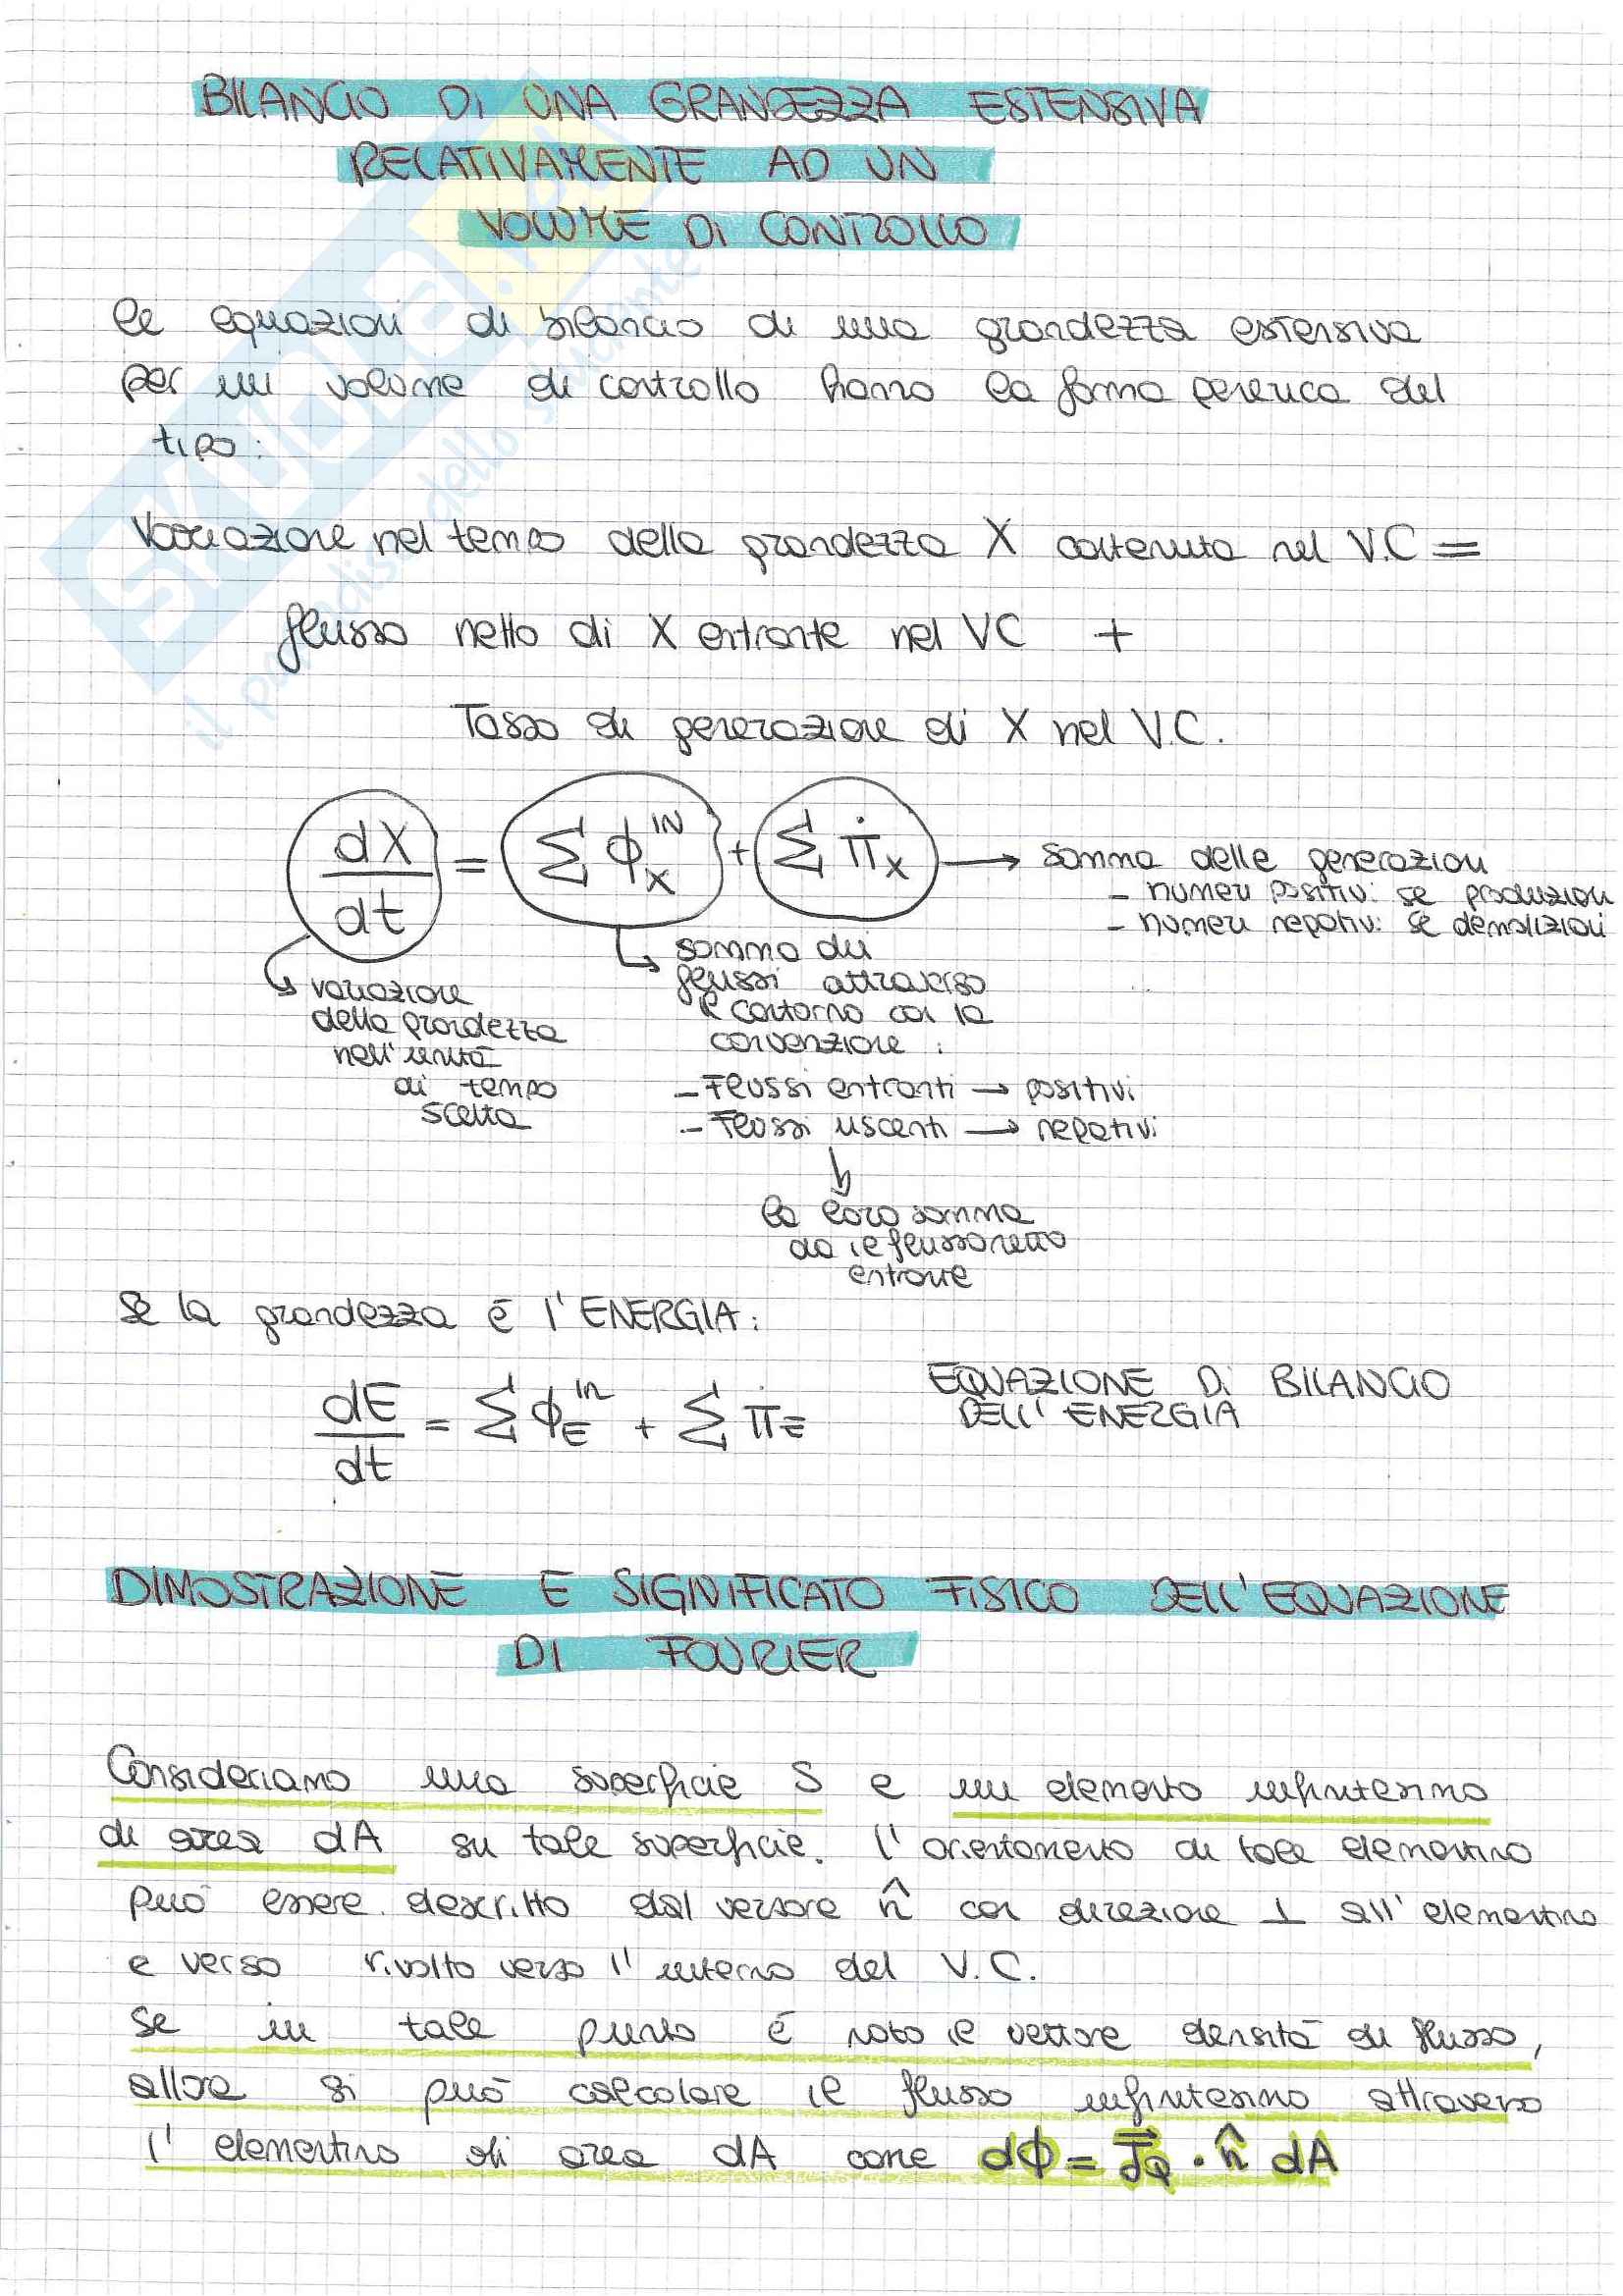 BILANCIO DI UNA GRANDEZZA ESTENSIVA
RELATIVAMENTE AD UN
VOLUME DI CONTROLLO
le equazioni di bilancio di una grandezza estensiva
per un volume di controllo hanno la forma generica del
tipo:
Variazione nel tempo della grandezza X contenuta nel V.C =
flusso netto di X entrante nel VC +
Tasso di generazione di X nel V.C.
dX/dt = Σ ϕ_X^IN + Σ π̇_X → somma delle generazioni
- numeri positivi se produzioni
- numeri negativi: se demolizioni
variazione
della grandezza
nell'unità
di tempo
scelta
somma dei
flussi attraverso
il contorno con la
convenzione:
- Flussi entranti → positivi
- Flussi uscenti → negativi
la loro somma
dà il flusso netto
entrante
Se la grandezza è l'ENERGIA:
dE/dt = Σ ϕ_E^in + Σ π̇_E
EQUAZIONE DI BILANCIO
DELL'ENERGIA
DIMOSTRAZIONE E SIGNIFICATO FISICO DELL'EQUAZIONE
DI FOURIER
Consideriamo una superficie S e un elemento infinitesimo
di area dA su tale superficie. l'orientamento di tale elementino
può essere descritto dal versore n̂ con direzione ⊥ all'elementino
e verso rivolto verso l'interno del V.C.
Se in tale punto è noto il vettore densità di flusso,
allora si può calcolare il flusso infinitesimo attraverso
l'elementino di area dA come dϕ = J⃗_Q · n̂ dA
SKUOLA.net
il paradiso dello studente